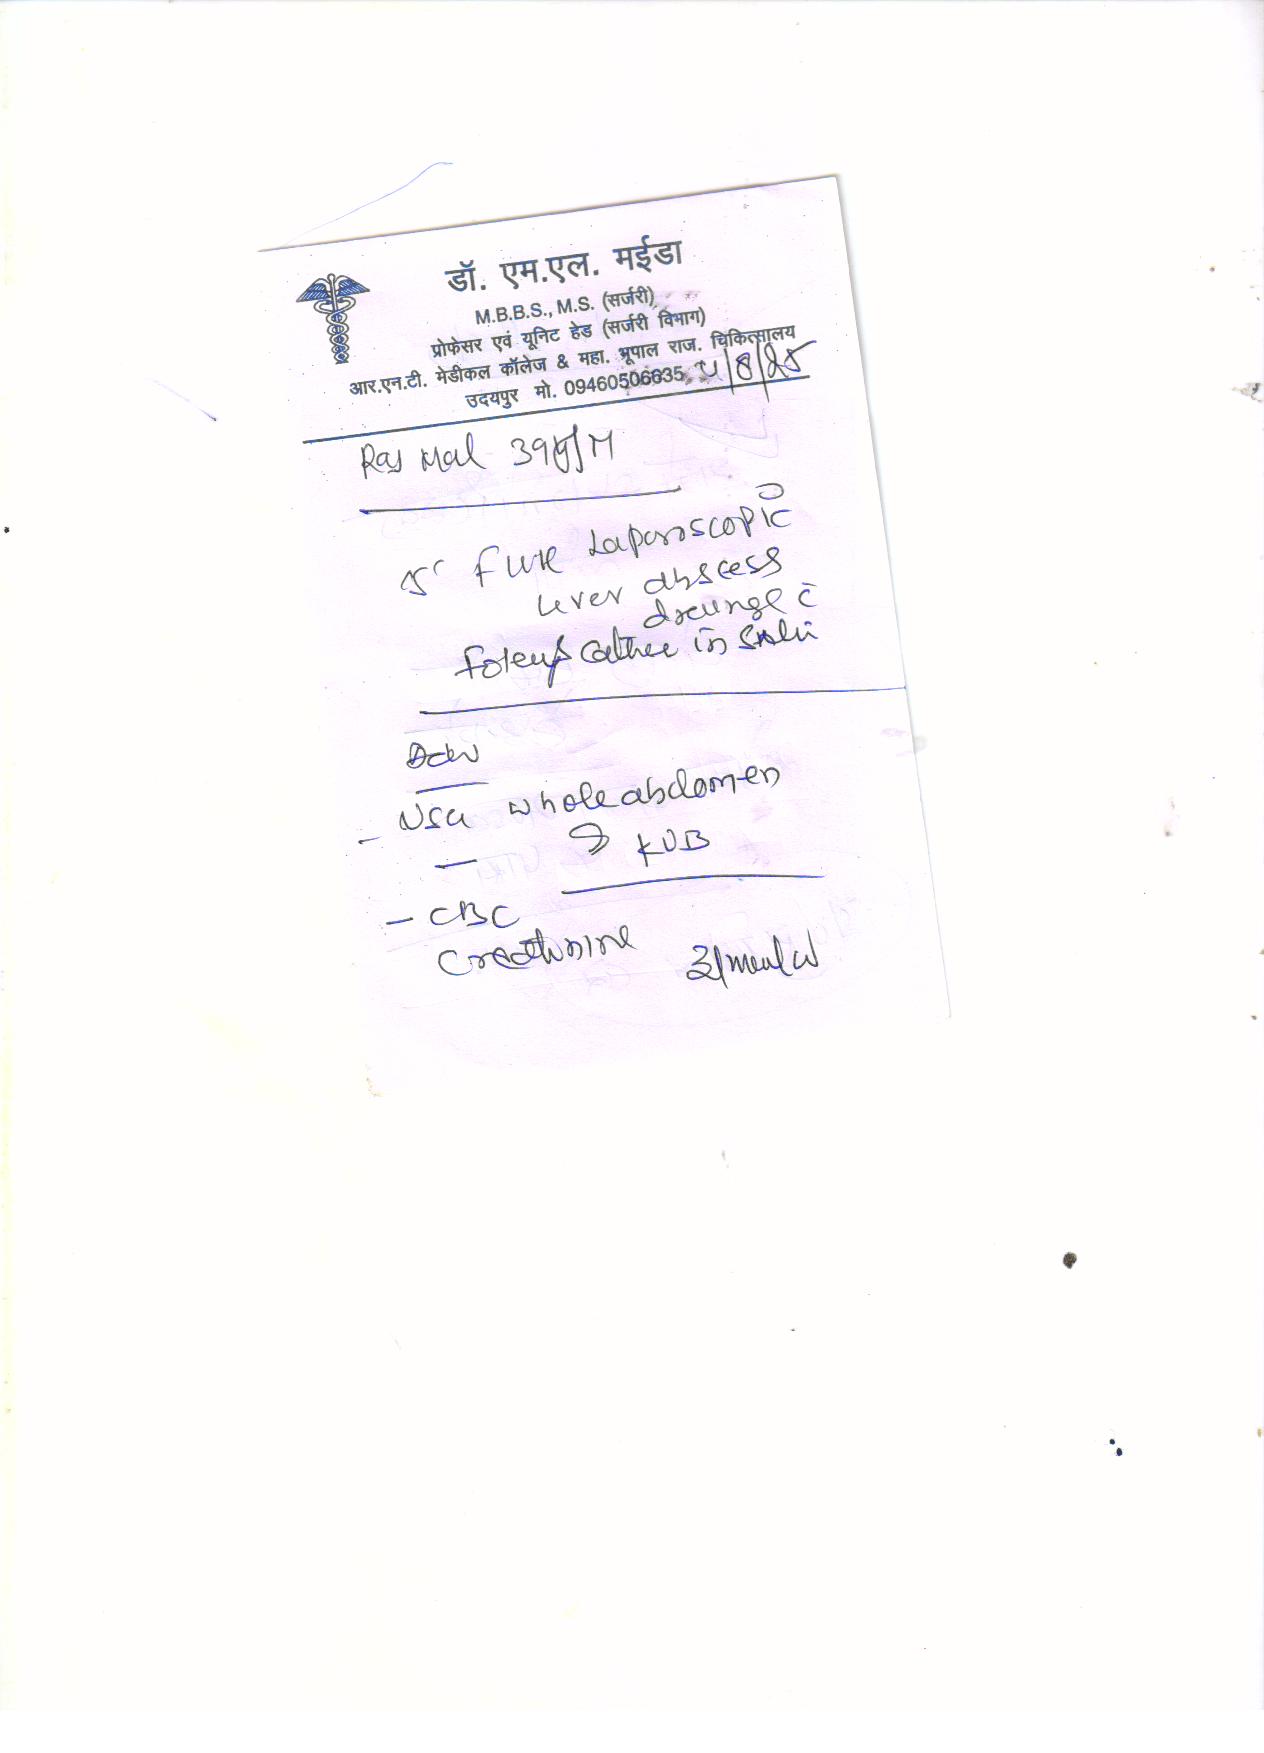 डॉ. एम.एल. मईडा
M.B.B.S., M.S. (सर्जरी)
प्रोफेसर एवं यूनिट हेड (सर्जरी विभाग)
आर.एन.टी. मेडीकल कॉलेज & महा. भूपाल राज. चिकित्सालय
उदयपुर मो. 09460506635
Raj Mal 39y/M
Laparoscopic
liver abscess
drainage c̄
Foley's cathe in situ
Adv
- USG whole abdomen
KUB
- CBC
Creatinine